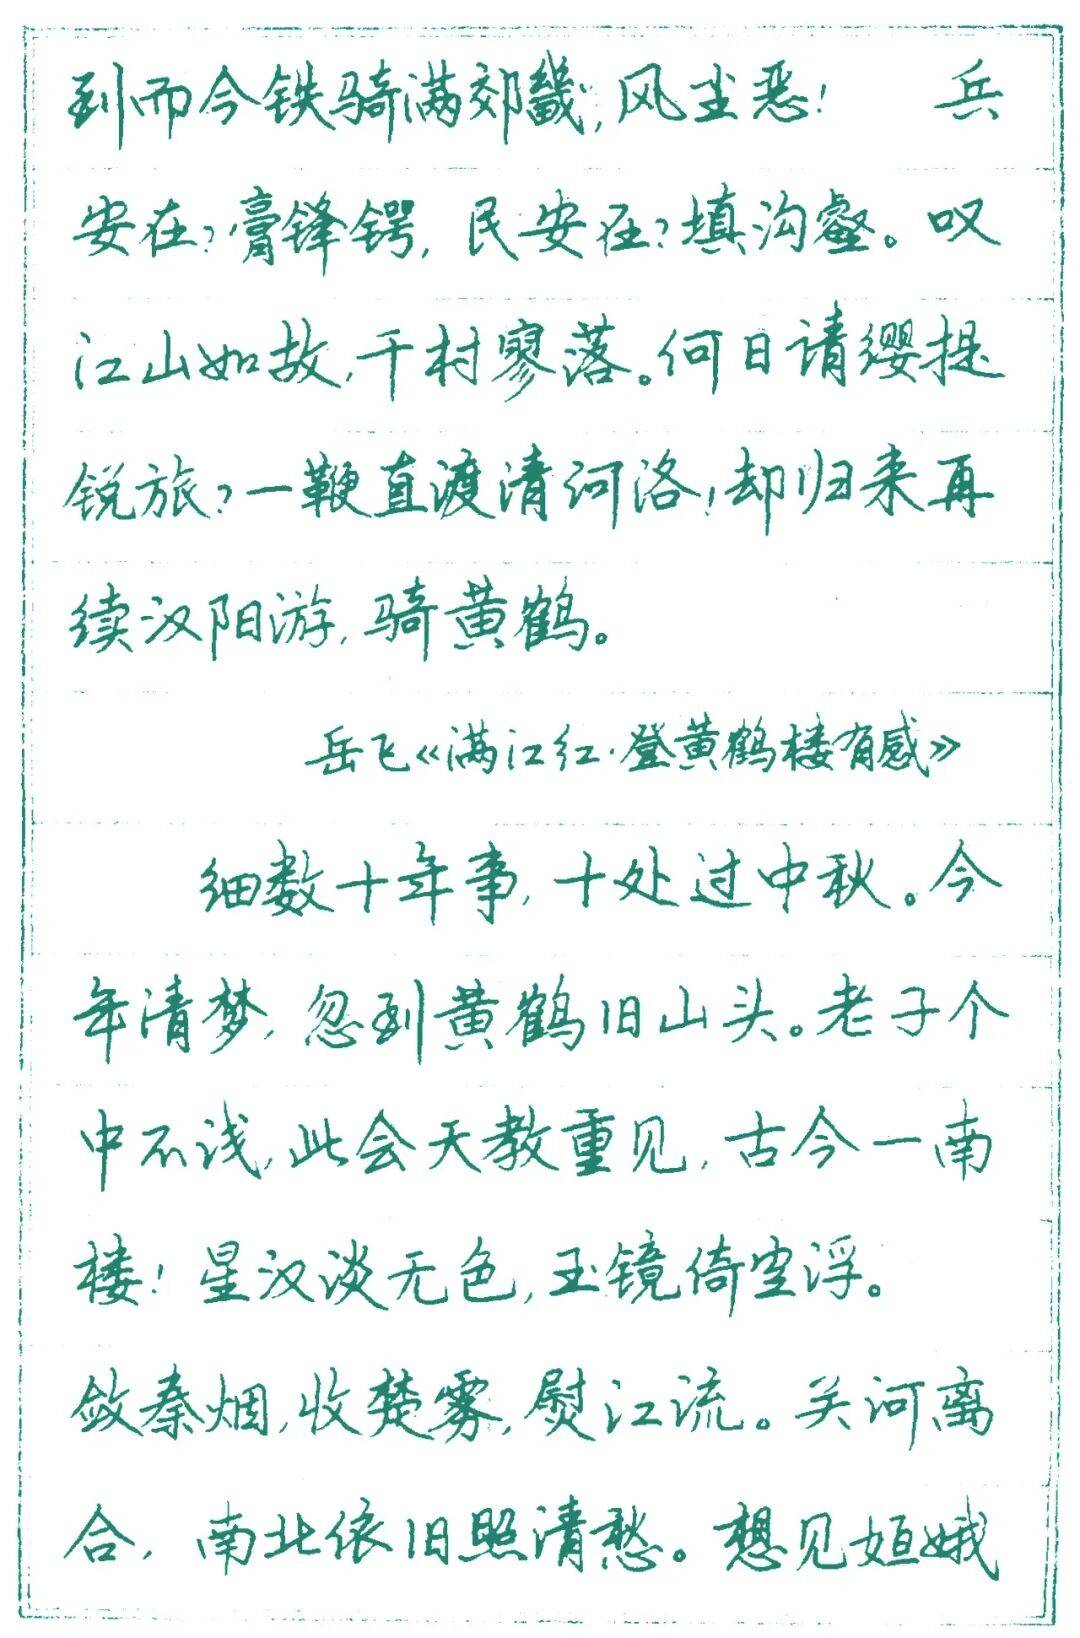 到而今铁骑满郊畿，风尘恶！ 兵
安在？膏锋锷，民安在？填沟壑。叹
江山如故，千村寥落。何日请缨提
锐旅？一鞭直渡清河洛！却归来再
续汉阳游，骑黄鹤。
岳飞《满江红·登黄鹤楼有感》
细数十年事，十处过中秋。今
年清梦，忽到黄鹤旧山头。老子个
中不浅，此会天教重见，古今一南
楼！星汉淡无色，玉镜倚空浮。
敛秦烟，收楚雾，熨江流。关河离
合，南北依旧照清愁。想见姮娥